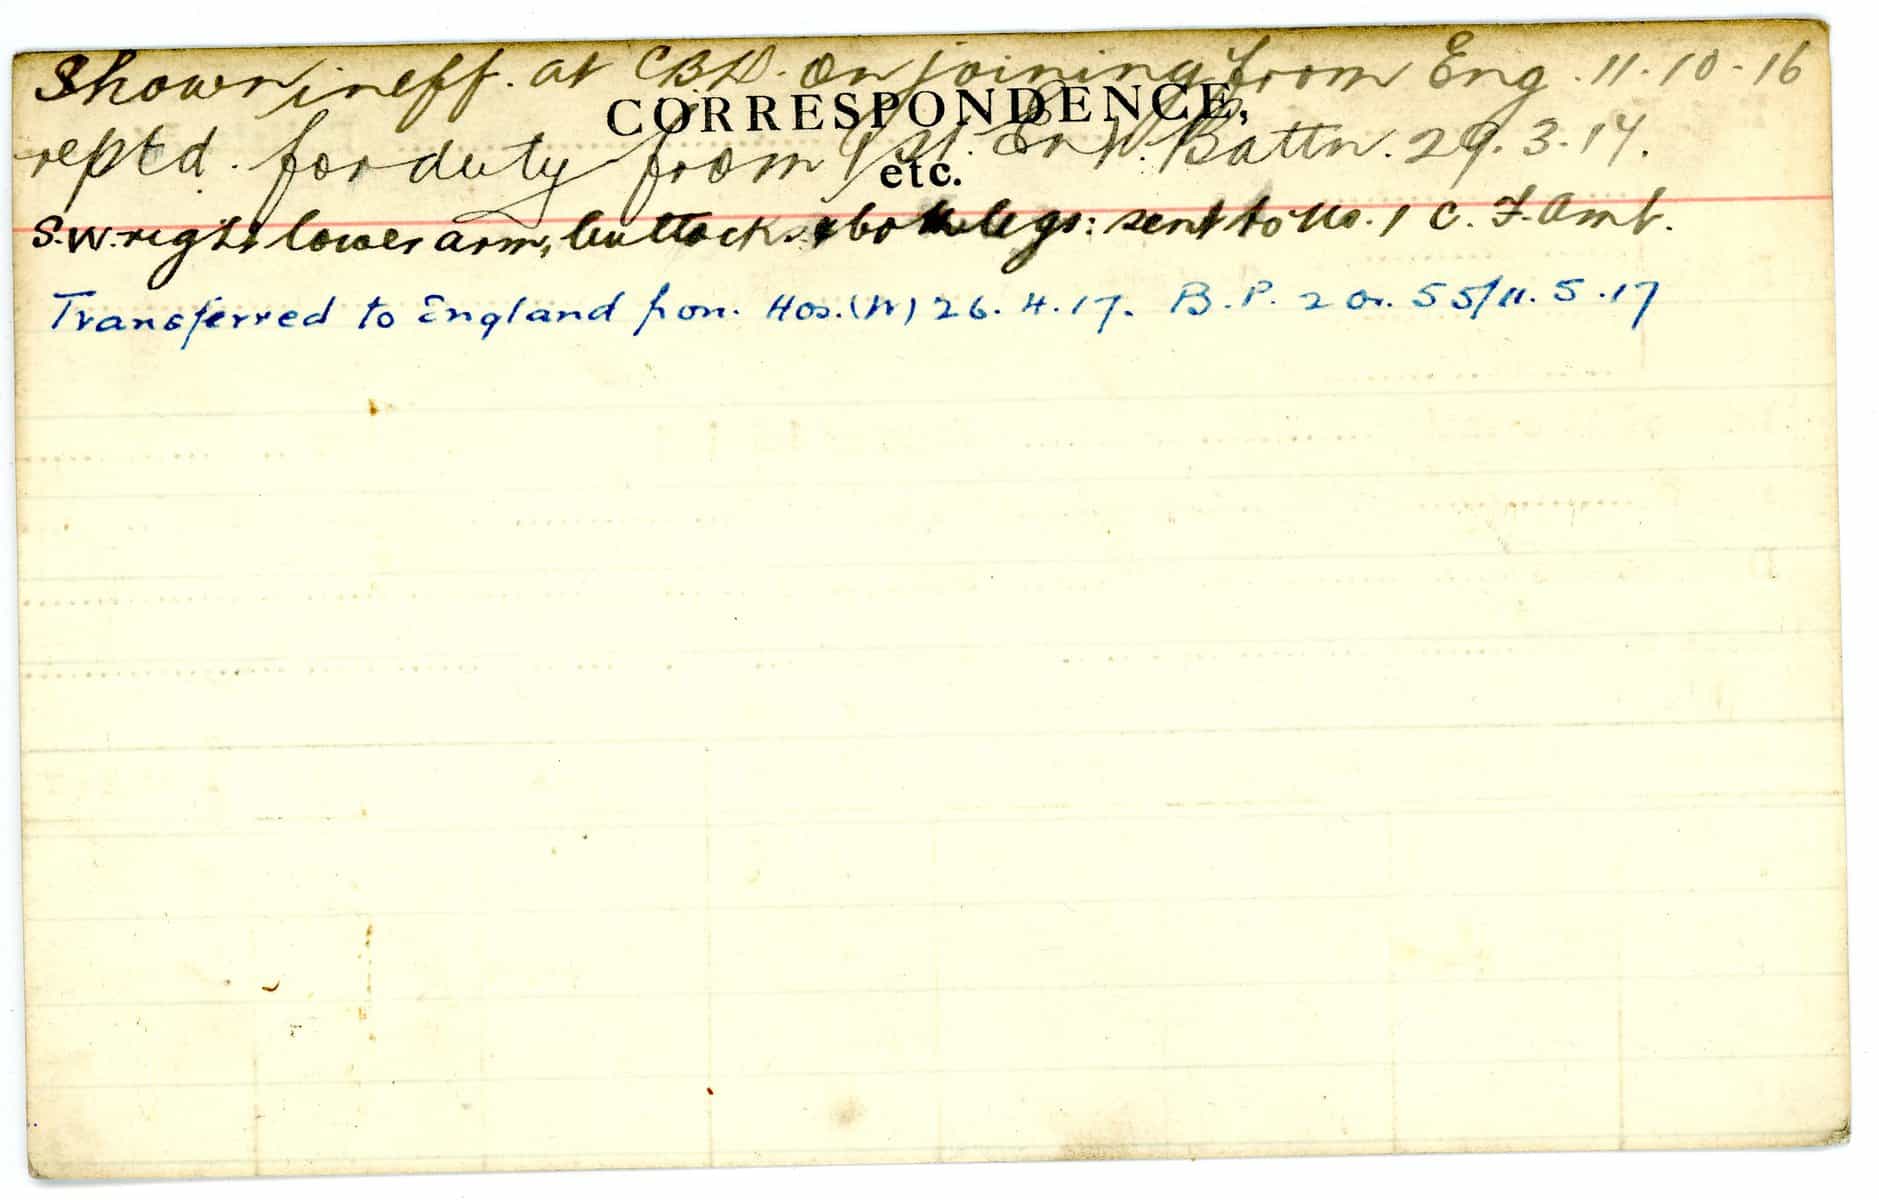 Shown ineff. at CBD. on joining from Eng. 11-10-16
CORRESPONDENCE,
reptd. for duty from 1st. Ent. Battn. 29.3.17.
etc.
S.W. right lower arm, buttocks & both legs: sent to No. 1 C. F. Amb.
Transferred to England from. Hos.(W) 26.4.17. B.P. 2 Or. 55/11.5.17